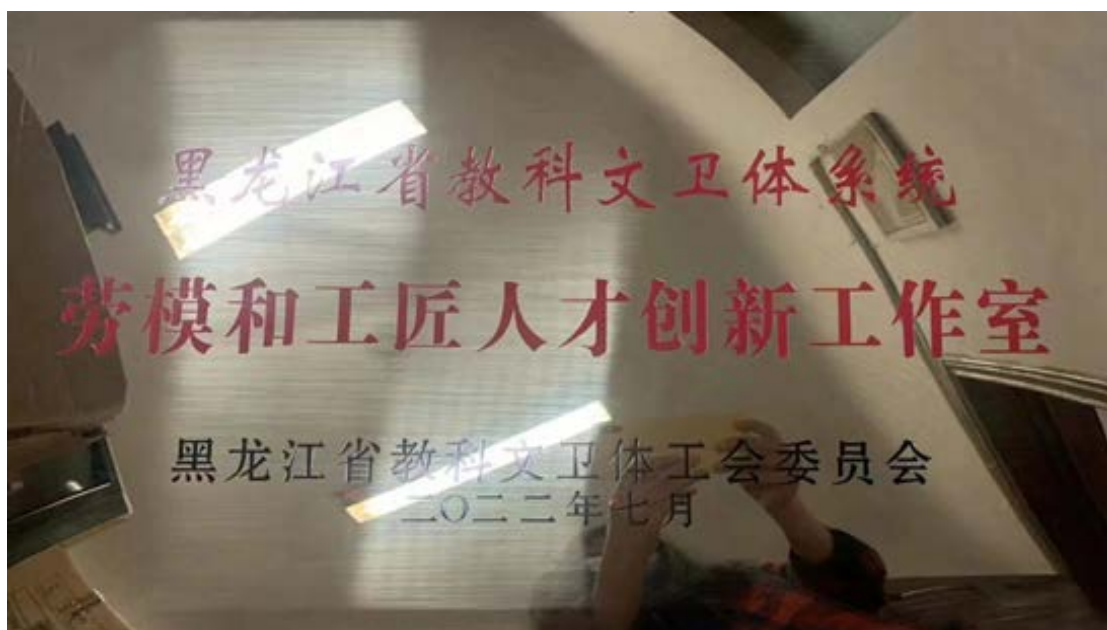 黑龙江省教科文卫体系统
劳模和工匠人才创新工作室
黑龙江省教科文卫体工会委员会
二〇二二年七月